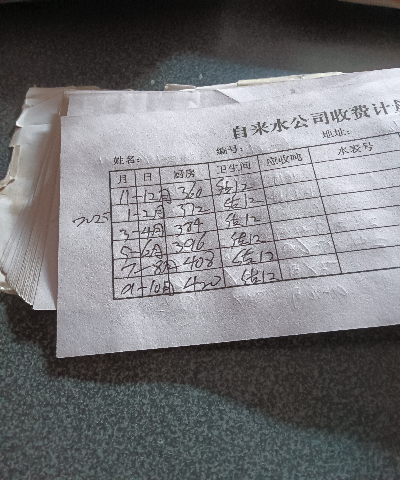 自来水公司收费计
姓名: 编号: 地址:
月 日 厨房 卫生间 应收吨 水表号
11-12月 360 结12
2025 1-2月 372 结12
3-4月 384 结12
5-6月 396 结12
7-8月 408 结12
9-10月 420 结12